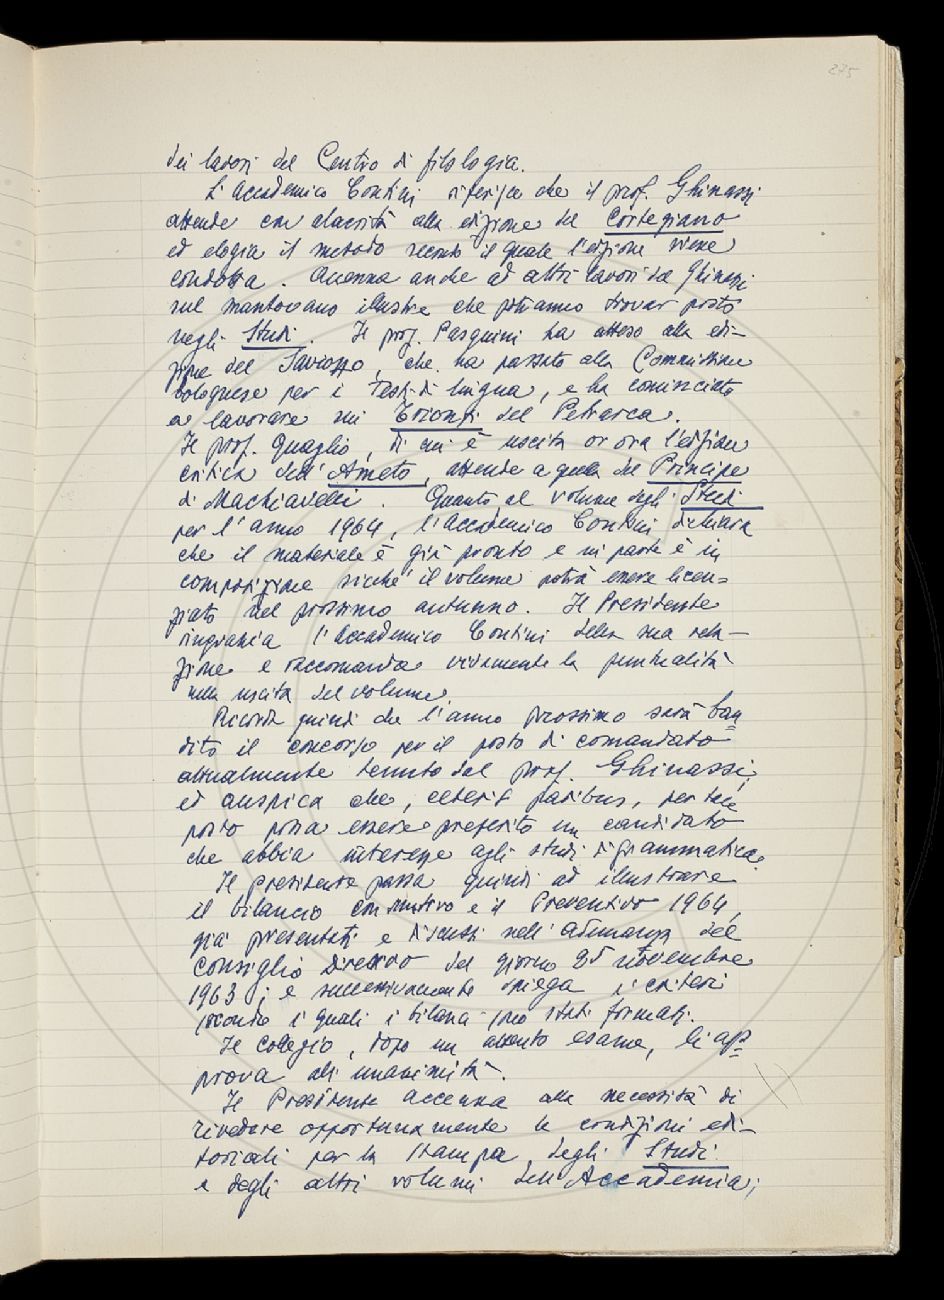 275
dei lavori del Centro di filologia.
L'Accademico Contini riferisce che il prof. Ghinassi
attende con alacrità alla edizione del Cortegiano
ed elogia il metodo secondo il quale l'edizione viene
condotta. Accenna anche ad altri lavori del Ghinassi
sul mantovano illustre che potranno trovar posto
negli Studi. Il prof. Pasquini ha atteso alla edi-
zione del Saviozzo, che ha passato alla Commissione
bolognese per i Testi di lingua, e ha cominciato
a lavorare sui Trionfi del Petrarca.
Il prof. Quaglio, di cui è uscita or ora l'edizione
critica dell'Ameto, attende a quella del Principe
di Machiavelli. Quanto al volume degli Studi
per l'anno 1964, l'Accademico Contini dichiara
che il materiale è già pronto e in parte è in
composizione sicché il volume potrà essere licen-
ziato nel prossimo autunno. Il Presidente
ringrazia l'Accademico Contini della sua rela-
zione e raccomanda vivamente la puntualità
nella uscita del volume.
Ricorda quindi che l'anno prossimo sarà ban-
dito il concorso per il posto di comandato
attualmente tenuto dal prof. Ghinassi,
ed auspica che, ceteris paribus, per tale
posto possa essere preferito un candidato
che abbia interesse agli studi di grammatica.
Il presidente passa quindi ad illustrare
il bilancio consuntivo e il Preventivo 1964,
già presentati e discussi nell'adunanza del
Consiglio Direttivo del giorno 25 novembre
1963; e successivamente spiega i criteri
secondo i quali i bilanci sono stati formati.
Il Collegio, dopo un attento esame, li ap-
prova all'unanimità.
Il Presidente accenna alla necessità di
rivedere opportunamente le condizioni edi-
toriali per la stampa degli Studi
e degli altri volumi dell'Accademia;